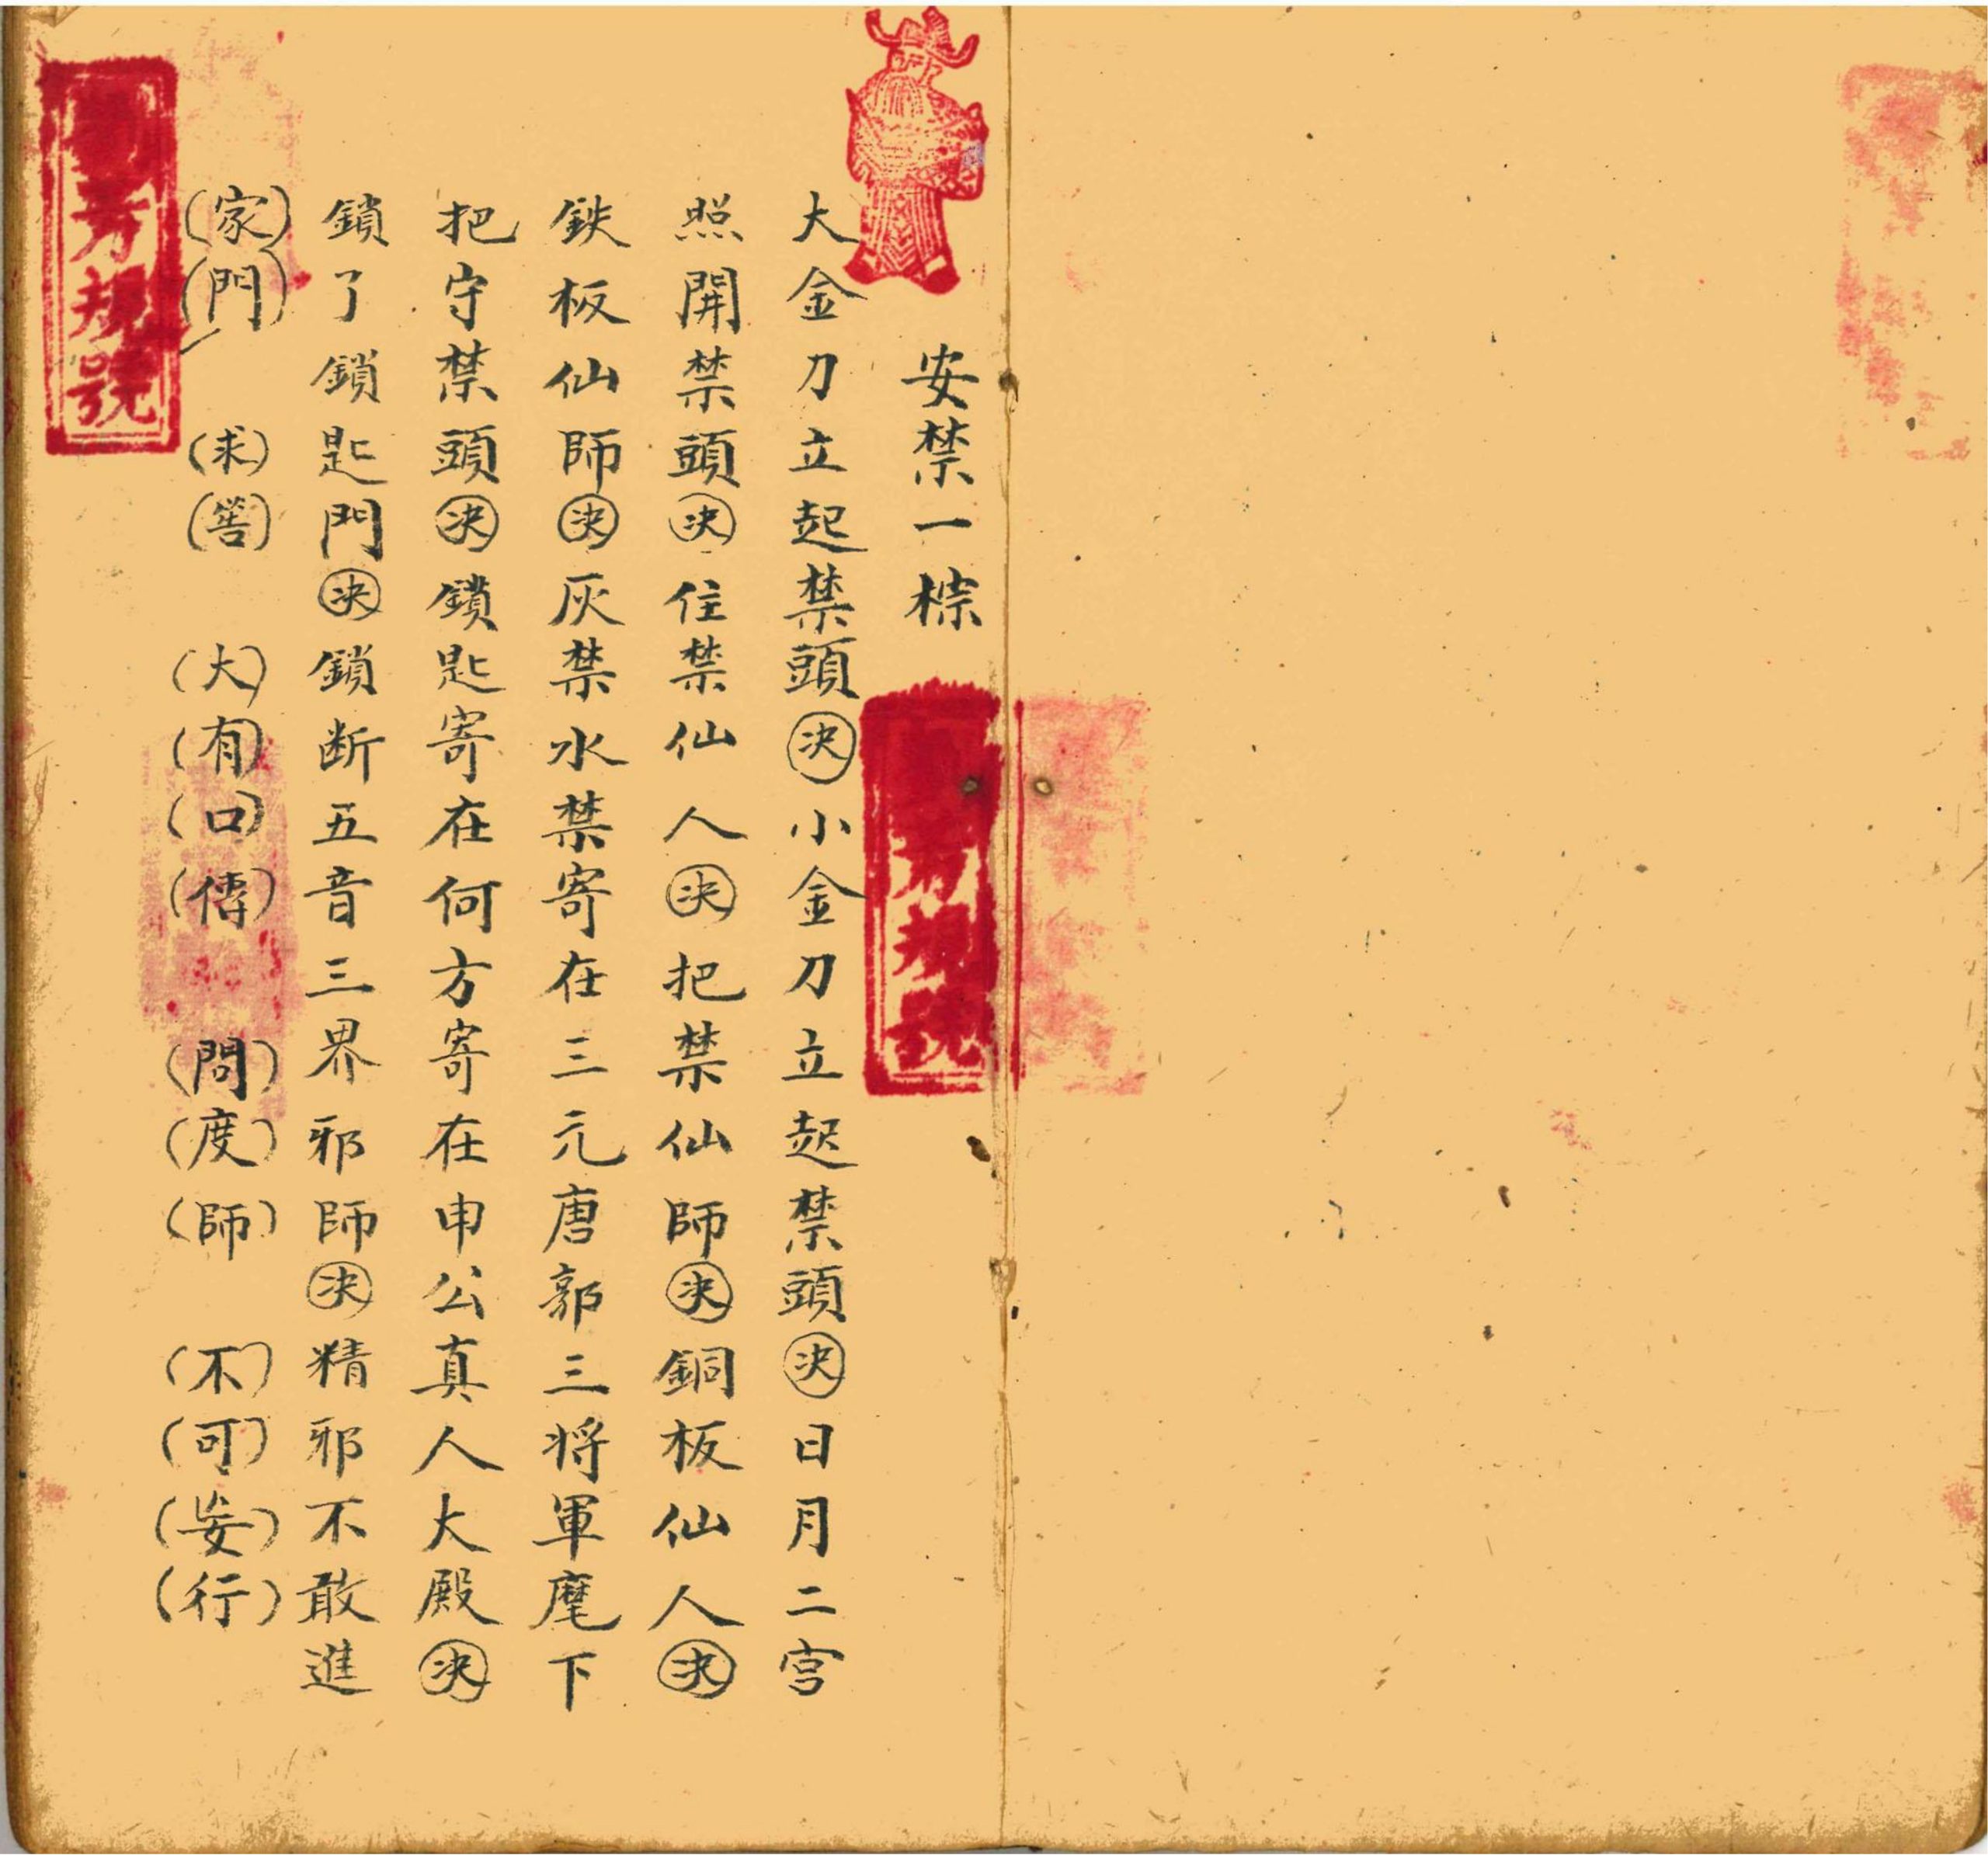 安禁一棕
大金刀立起禁頭決小金刀立起禁頭決日月二宮
照開禁頭決住禁仙人決把禁仙師決銅板仙人決
鉄板仙師決灰禁水禁寄在三元唐郭三将軍麾下
把守禁頭決鎖匙寄在何方寄在申公真人大殿決
鎖了鎖匙門決鎖断五音三界邪師決精邪不敢進
(家)(門) (求)(筶) (大)(有)(口)(傳) (問)(度)(師) (不)(可)(妄)(行)
芳規號
芳規號